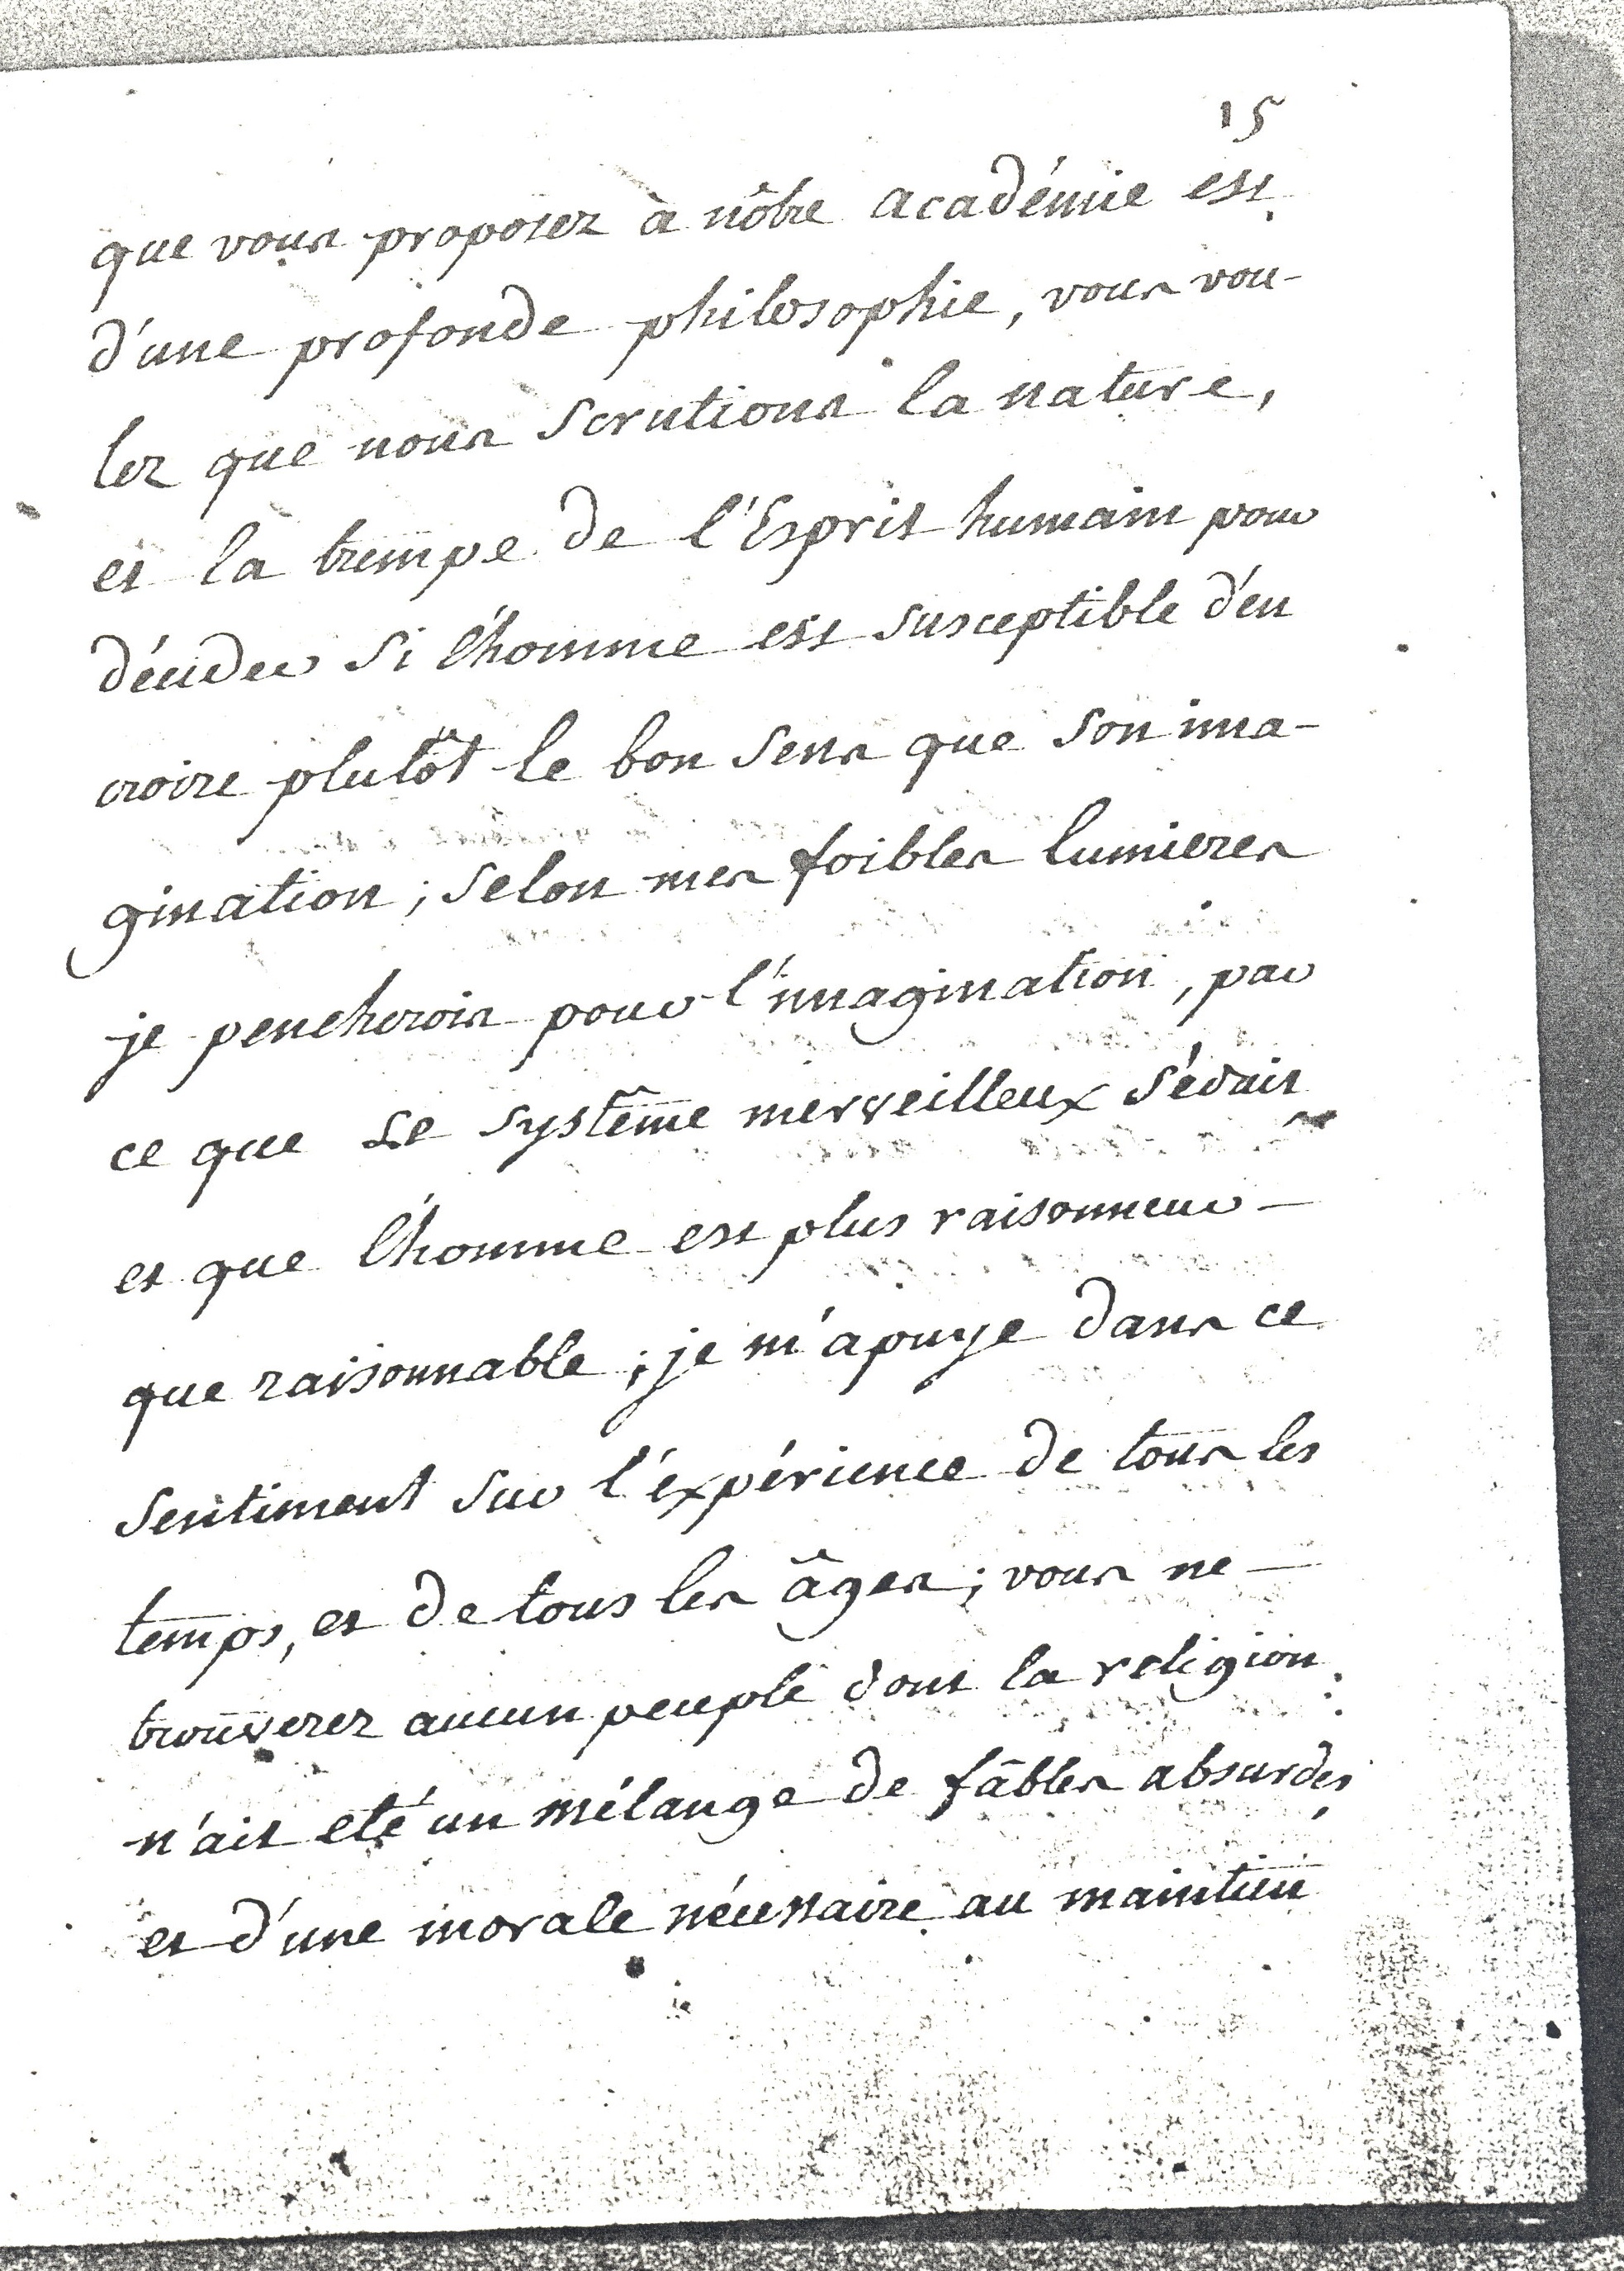 15
que vous proposez à nôtre académie est
d'une profonde philosophie, vous vou-
lez que nous scrutions la nature,
et la trempe de l'Esprit humain pour
décider si l'homme est susceptible d'en
croire plutôt le bon sens que son ima-
gination ; selon mes foibles lumieres
je pencherois pour l'imagination, par
ce que le systême merveilleux séduit
et que l'homme est plus raisonneur
que raisonnable ; je m'apuye dans ce
sentiment sur l'éxpérience de tous les
temps, et de tous les âges ; vous ne
trouverez aucun peuple dont la religion
n'ait eté un mélange de fâbles absurdes
et d'une morale nécessaire au maintien